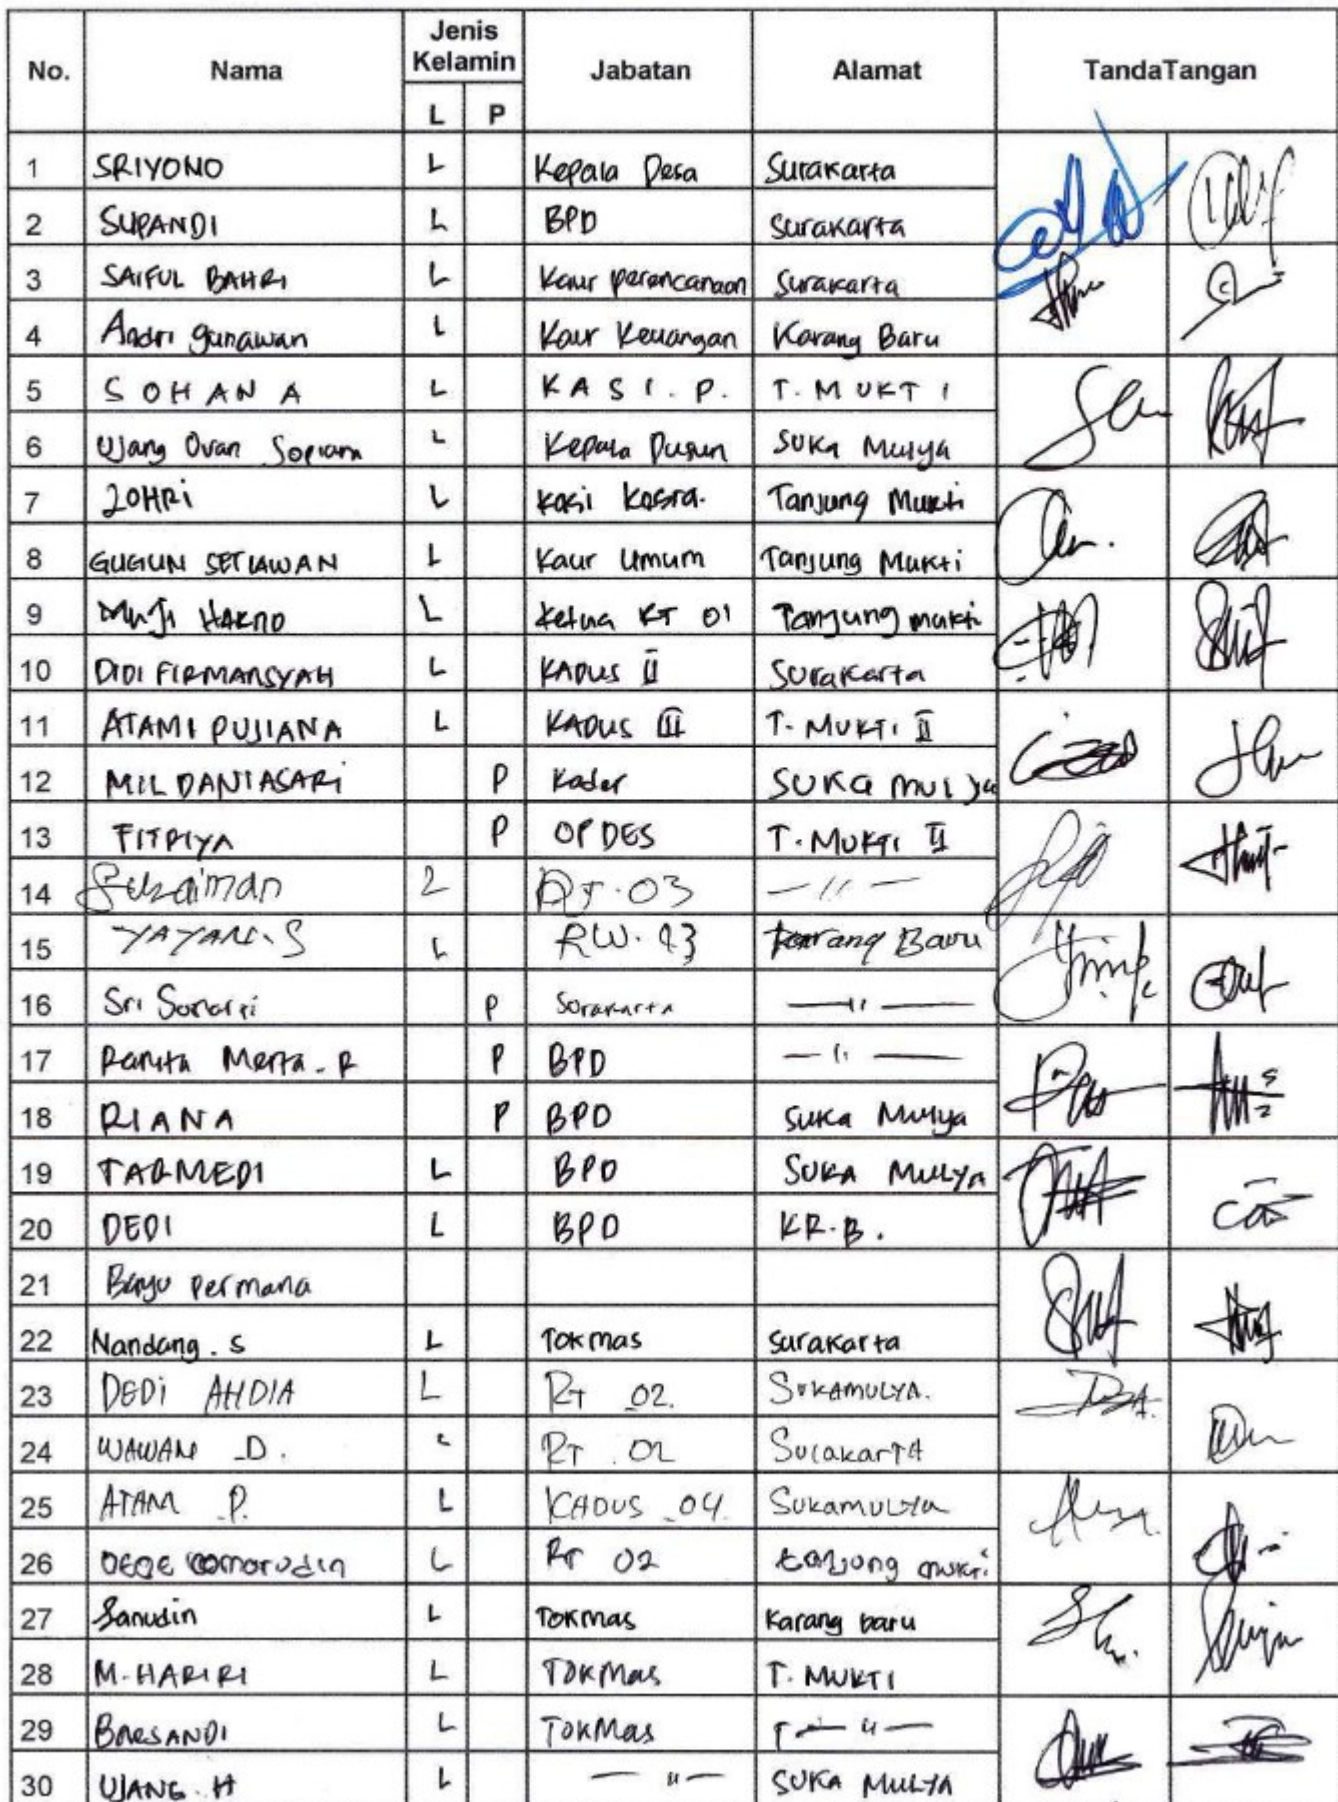 No. Nama Jenis Kelamin Jabatan Alamat TandaTangan
L P
1 SRIYONO L Kepala Desa Surakarta
2 SUPANDI L BPD Surakarta
3 SAIFUL BAHRI L Kaur perencanaan Surakarta
4 Andri gunawan L Kaur Keuangan Karang Baru
5 SOHANA L KASI.P. T. MUKTI
6 Ujang Ovan Sopiana L Kepala Dusun SUKA Mulya
7 ZOHRi L Kasi Kesra. Tanjung Mukti
8 GUGUN SETIAWAN L Kaur Umum Tanjung Mukti
9 MUJI HARNO L Ketua RT 01 Tanjung mukti
10 DIDI FIRMANSYAH L KADUS II Surakarta
11 ATAMI PUJIANA L KADUS III T. MUKTI II
12 MIL DANIASARI P Kader SUKA mulya
13 FITRIYA P OPDES T. MUKTI II
14 Sulaiman L RT. 03 — 〃 —
15 YAYAN. S L RW. Karang Baru
16 Sri P Surakarta — 〃 —
17 Ranita Merta. R P BPD — 〃 —
18 RIANA P BPD Suka Mulya
19 TARMEDI L BPD SUKA MULYA
20 DEDI L BPD KR.B.
21 Bayu permana
22 Nandang. S L TOKmas Surakarta
23 DEDI AHDIA L RT 02. SUKAMULYA.
24 WAWAN D. L RT. Surakarta
25 ATAM P. L KADUS 04. Sukamulya
26 DEDE comorudin L RT 02 tanjung mukti
27 Sanudin L TOKmas Karang baru
28 M. HARIRI L TOKMas T. MUKTI
29 BAESANDI L TOKMas T — 〃 —
30 UJANG. H L — 〃 — SUKA MULYA